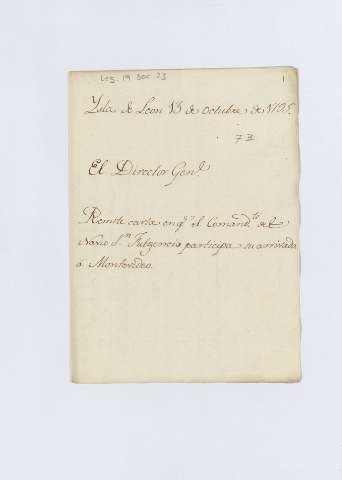 Leg. 19 Doc 23
1
Ysla de Leon 13 de Octubre de 1795.
73
El Director Gen.l
Remite carta en q.e el Comand.te del
Navio S.n Fulgencio participa su arrivada
á Montevideo.